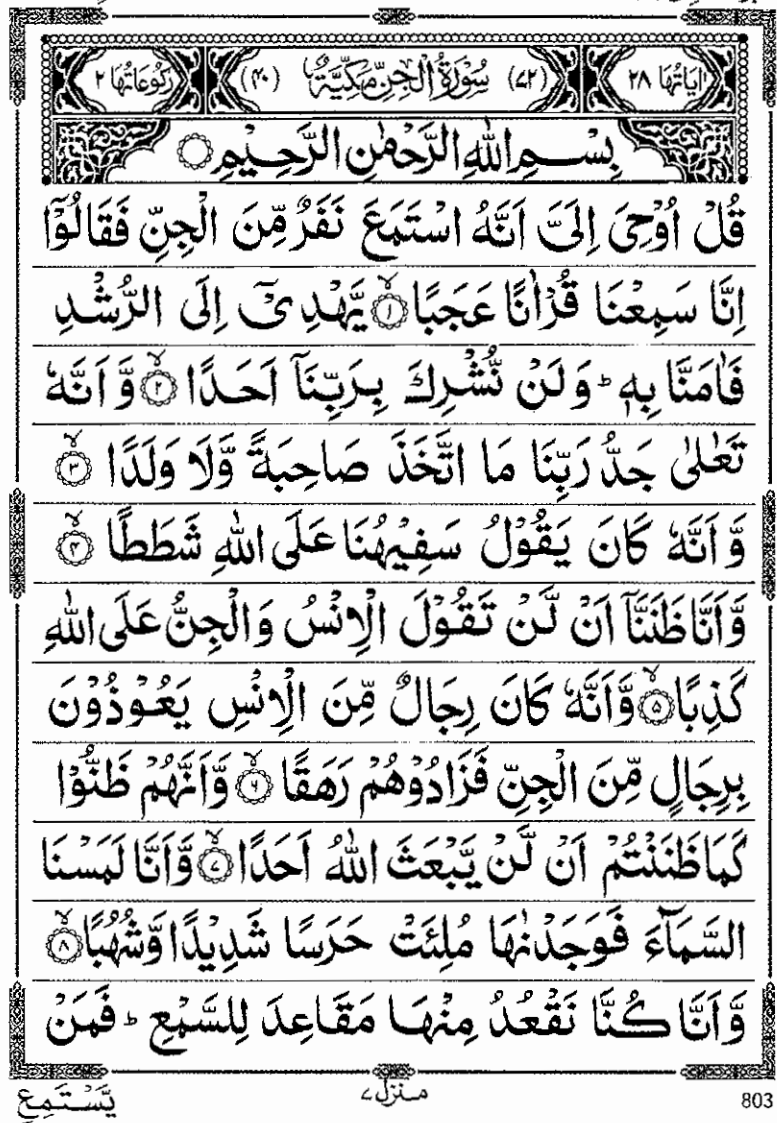 اٰیَاتُهَا ۲۸ (۷۲) سُوْرَةُ الْجِنِّ مَكِّیَّةٌ (۴۰) رُكُوْعَاتُهَا ۲
بِسْمِ اللّٰهِ الرَّحْمٰنِ الرَّحِیْمِ
قُلْ اُوْحِیَ اِلَیَّ اَنَّهُ اسْتَمَعَ نَفَرٌ مِّنَ الْجِنِّ فَقَالُوْۤا
اِنَّا سَمِعْنَا قُرْاٰنًا عَجَبًا ۙ‏﴿۱﴾ یَّهْدِیْۤ اِلَی الرُّشْدِ
فَاٰمَنَّا بِهٖ ؕ وَلَنْ نُّشْرِكَ بِرَبِّنَاۤ اَحَدًا ۙ‏﴿۲﴾ وَّاَنَّهٗ
تَعٰلٰی جَدُّ رَبِّنَا مَا اتَّخَذَ صَاحِبَةً وَّلَا وَلَدًا ۙ‏﴿۳﴾
وَّاَنَّهٗ كَانَ یَقُوْلُ سَفِیْهُنَا عَلَی اللّٰهِ شَطَطًا ۙ‏﴿۴﴾
وَّاَنَّا ظَنَنَّاۤ اَنْ لَّنْ تَقُوْلَ الْاِنْسُ وَالْجِنُّ عَلَی اللّٰهِ
كَذِبًا ۙ‏﴿۵﴾ وَّاَنَّهٗ كَانَ رِجَالٌ مِّنَ الْاِنْسِ یَعُوْذُوْنَ
بِرِجَالٍ مِّنَ الْجِنِّ فَزَادُوْهُمْ رَهَقًا ۙ‏﴿۶﴾ وَّاَنَّهُمْ ظَنُّوْا
كَمَا ظَنَنْتُمْ اَنْ لَّنْ یَّبْعَثَ اللّٰهُ اَحَدًا ۙ‏﴿۷﴾ وَّاَنَّا لَمَسْنَا
السَّمَآءَ فَوَجَدْنٰهَا مُلِئَتْ حَرَسًا شَدِیْدًا وَّشُهُبًا ۙ‏﴿۸﴾
وَّاَنَّا كُنَّا نَقْعُدُ مِنْهَا مَقَاعِدَ لِلسَّمْعِ ؕ فَمَنْ
یَّسْتَمِعِ
منزل ۷
803